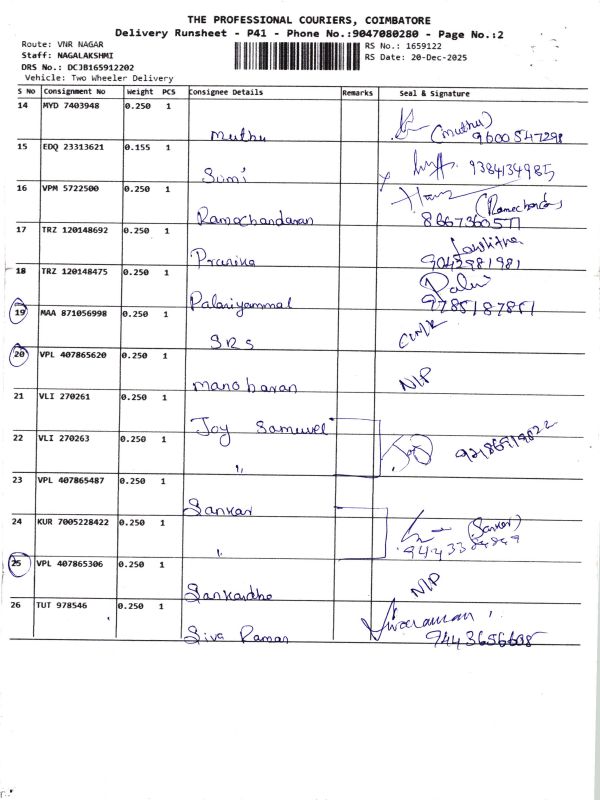 THE PROFESSIONAL COURIERS, COIMBATORE
Delivery Runsheet - P41 - Phone No.:9047080280 - Page No.:2
Route: VNR NAGAR
Staff: NAGALAKSHMI
DRS No.: DCJB165912202
Vehicle: Two Wheeler Delivery
RS No.: 1659122
RS Date: 20-Dec-2025
S No Consignment No Weight PCS Consignee Details Remarks Seal & Signature
14 MYD 7403948 0.250 1
Muthu (Muthu) 9600547298
15 EDQ 23313621 0.155 1
Sumi 9384134985
16 VPM 5722500 0.250 1
Ramachandaran
17 TRZ 120148692 0.250 1
9043981981
18 TRZ 120148475 0.250 1
Palaniyammal
19 MAA 871056998 0.250 1
SRS
20 VPL 407865620 0.250 1
manoharan NIP
21 VLI 270261 0.250 1
Joy Samuvel
22 VLI 270263 0.250 1
" Joy
23 VPL 407865487 0.250 1
Sankar
24 KUR 7005228422 0.250 1
" (Sankar)
25 VPL 407865306 0.250 1
NIP
26 TUT 978546 0.250 1
Siva Raman Sivaraman
9443656605